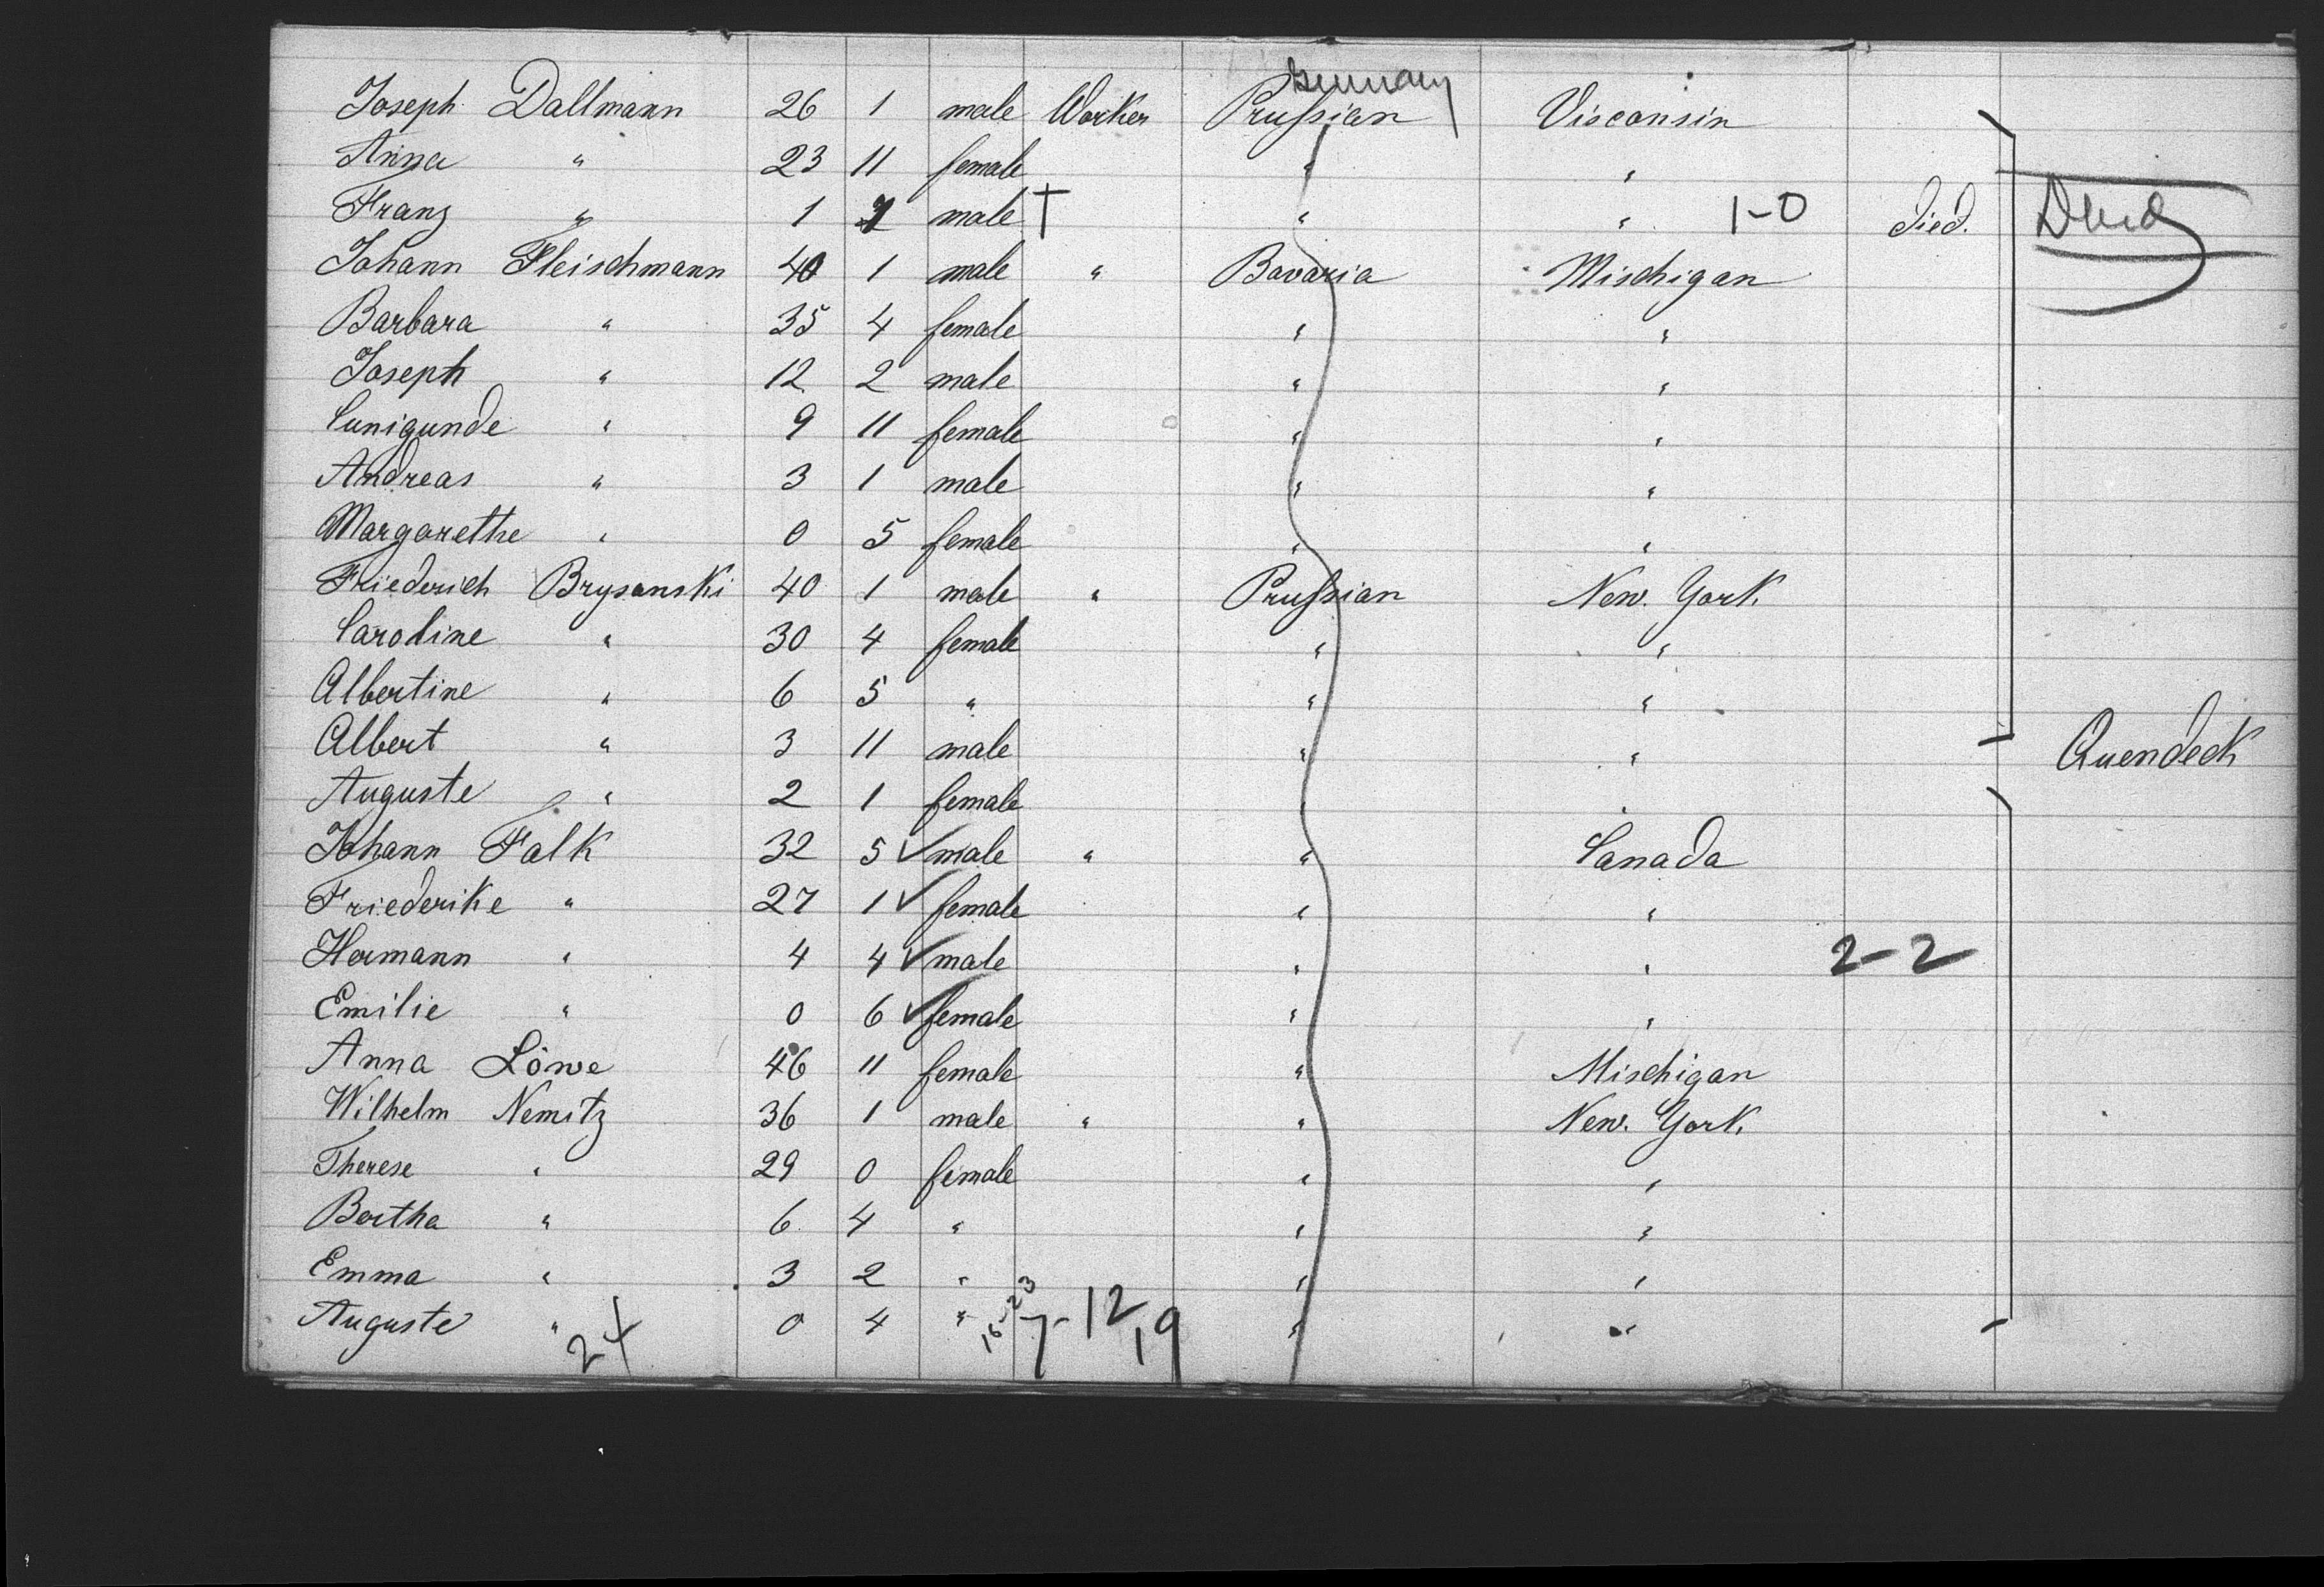 Germany
Joseph Dallmann 26 1 male Worker Prussian Visconsin
Anna " 23 11 female " "
Franz " 1 male † " " 1-0 died. Died
Johann Fleischmann 40 1 male " Bavaria Mischigan
Barbara " 35 4 female " "
Joseph " 12 2 male " "
Cunigunde " 9 11 female " "
Andreas " 3 1 male " "
Margarethe " 0 5 female " "
Friederich Brysanski 40 1 male " Prussian New. York.
Caroline " 30 4 female " "
Albertine " 6 5 " " "
Albert " 3 11 male " " Quendeck
Auguste " 2 1 female " "
Johann Falk 32 5 ✓ male " " Canada
Friederike " 27 1 ✓ female " "
Hermann " 4 4 ✓ male " " 2-2
Emilie " 0 6 ✓ female " "
Anna Löwe 46 11 female " Mischigan
Wilhelm Nemitz 36 1 male " " New. York.
Therese " 29 0 female " "
Bertha " 6 4 " " "
Emma " 3 2 " " "
Auguste " 0 4 " " "
24 16-23 7-12 19